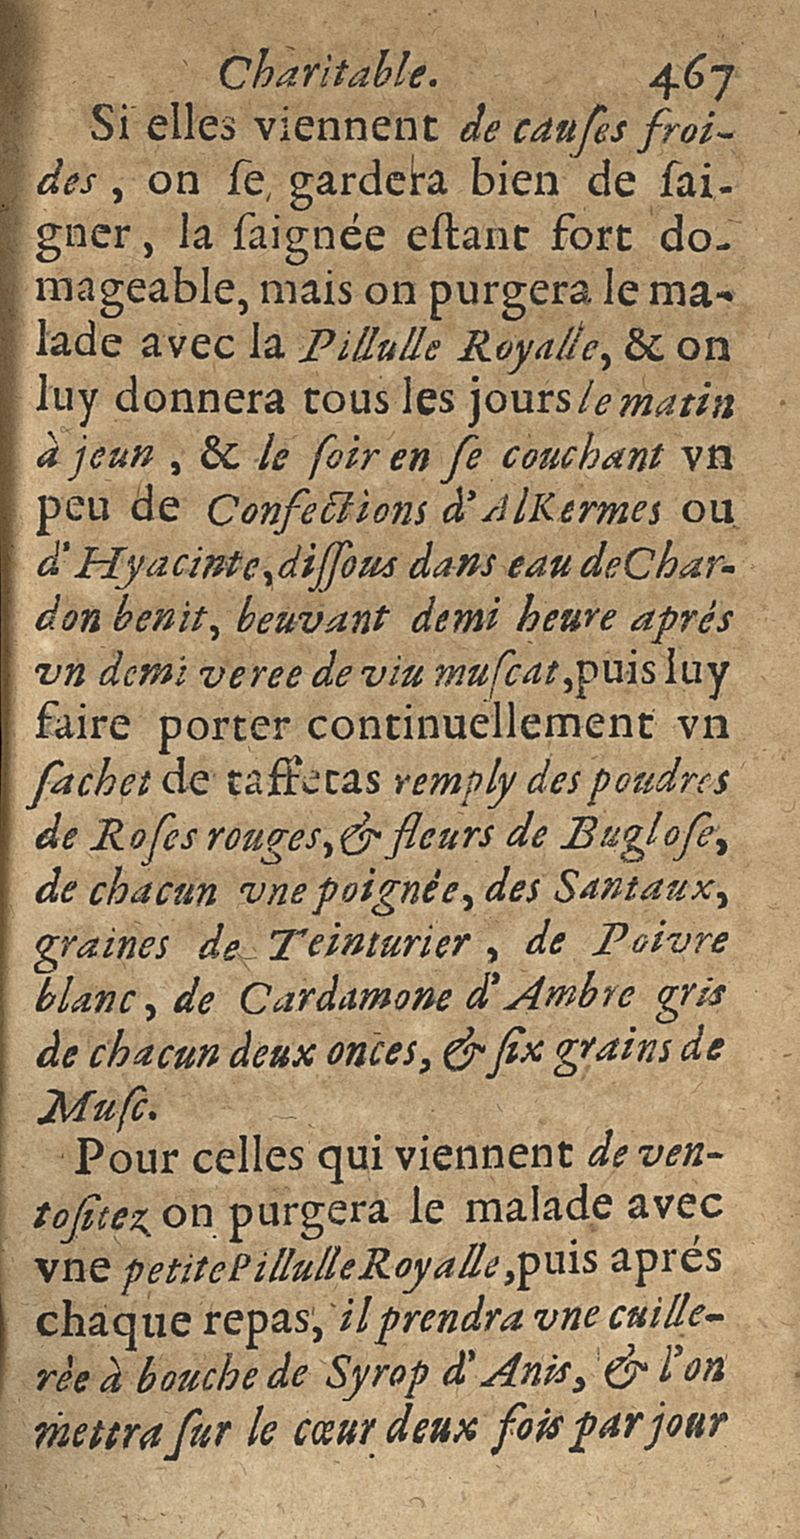 Charitable. 467
Si elles viennent de cauſes froi-
des, on ſe gardera bien de ſai-
gner, la ſaignée eſtant fort do-
mageable, mais on purgera le ma-
lade avec la Pillulle Royalle, & on
luy donnera tous les jours le matin
à jeun, & le ſoir en ſe couchant vn
peu de Confections d'AlKermes ou
d'Hyacinte, diſſous dans eau de Char-
don benit, beuvant demi heure aprés
vn demi veree de viu muſcat, puis luy
faire porter continuellement vn
ſachet de taffetas remply des poudres
de Roſes rouges, & fleurs de Bugloſe,
de chacun vne poignée, des Santaux,
graines de Teinturier, de Poivre
blanc, de Cardamone d'Ambre gris
de chacun deux onces, & ſix grains de
Muſc.
Pour celles qui viennent de ven-
toſitez on purgera le malade avec
vne petite Pillulle Royalle, puis aprés
chaque repas, il prendra vne cuille-
rèe à bouche de Syrop d'Anis, & l'on
mettra ſur le cœur deux fois par jour